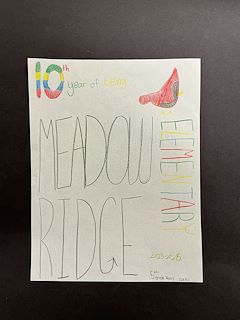 10th year of being
MEADOW
RIDGE
ELEMENTARY